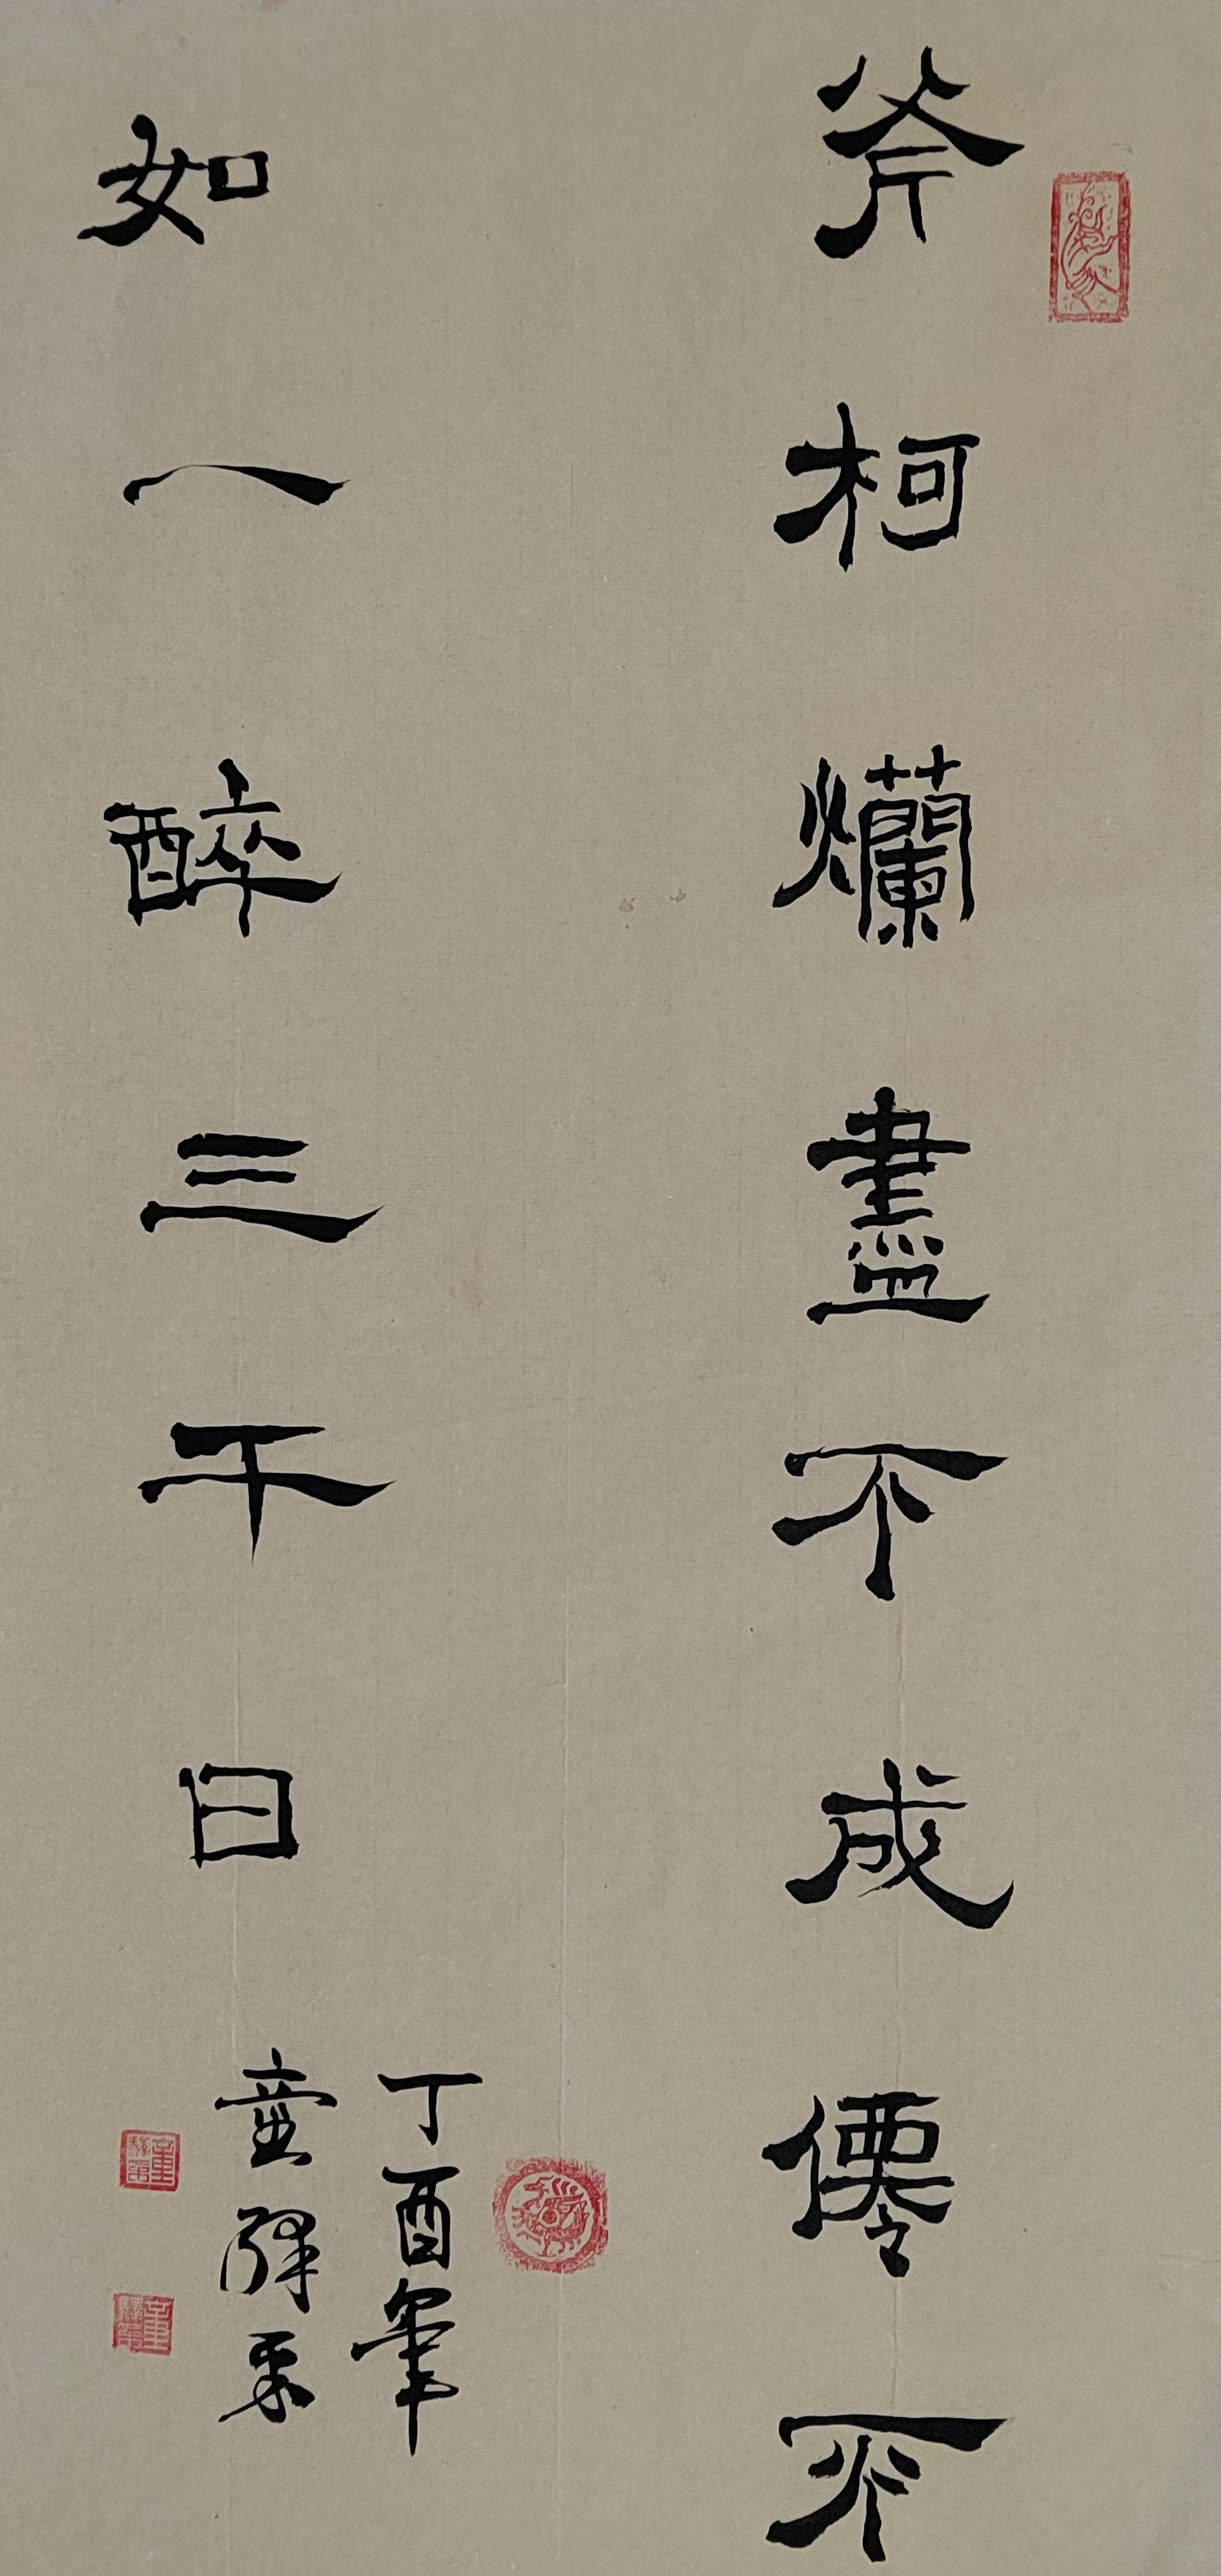 斧柯爛盡不成僊不
如一醉三千日
丁酉年
童